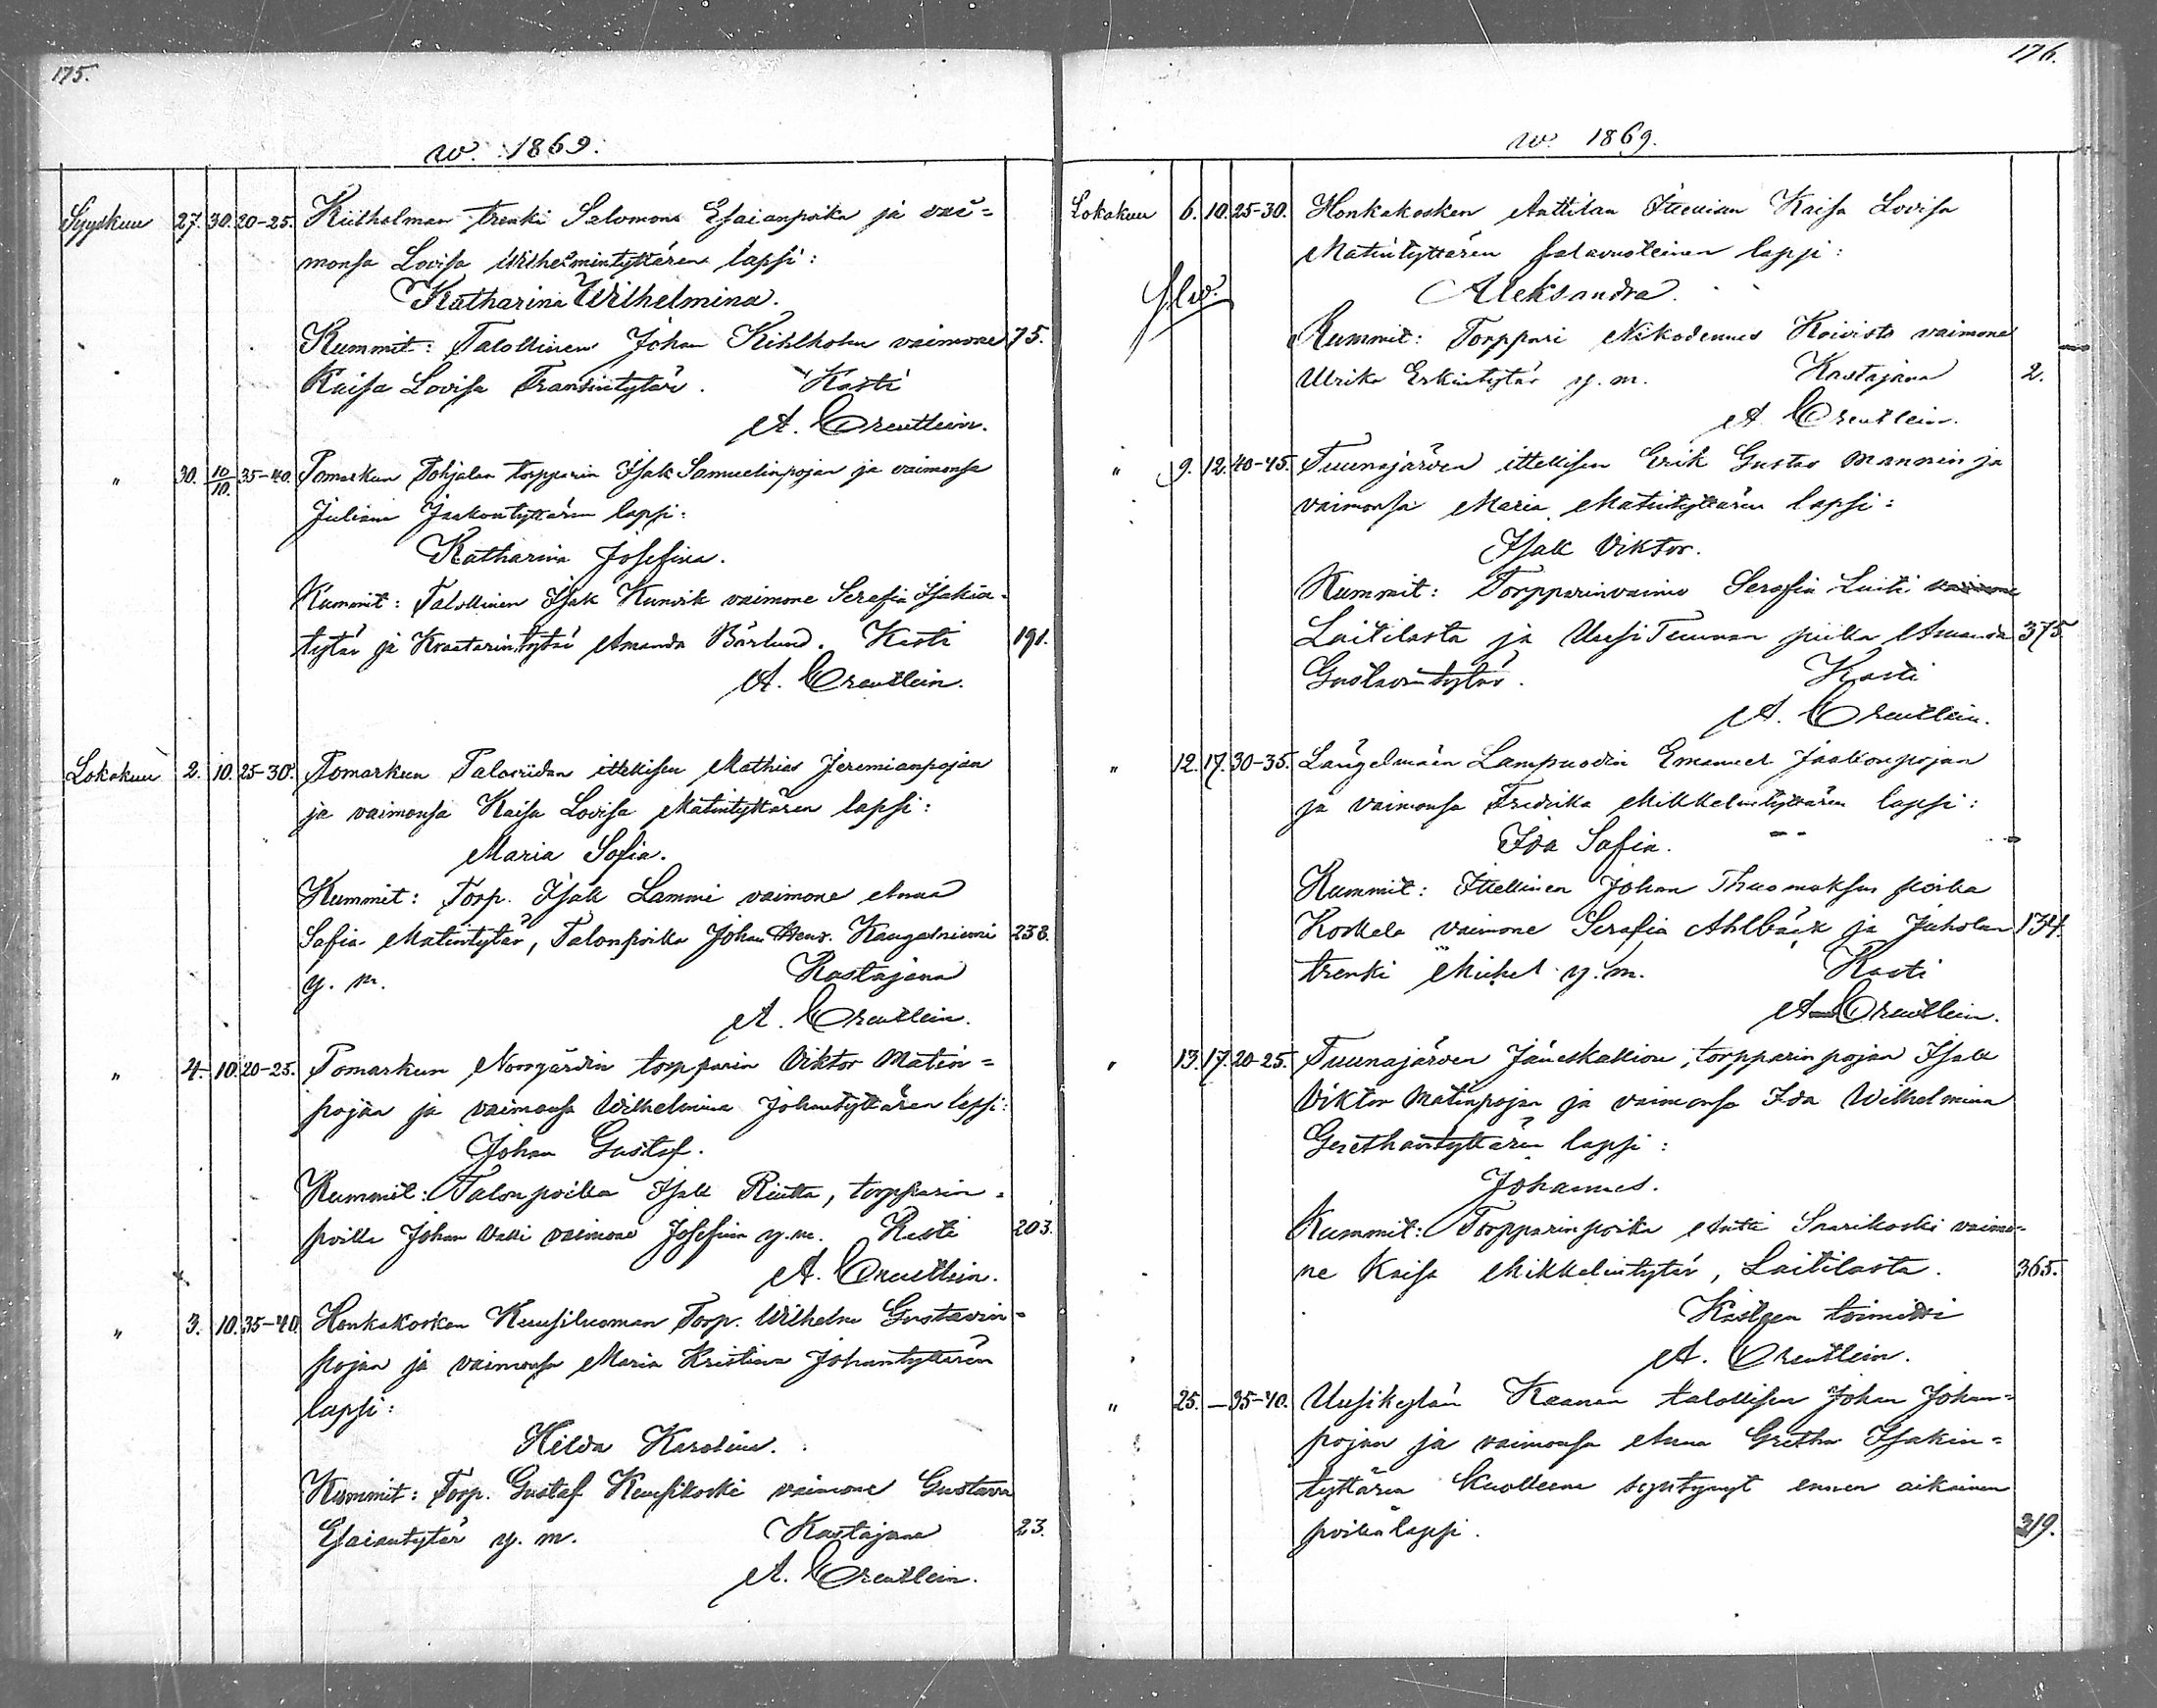 175.
w. 1869.
Syyskuu 27. 30. 20-25. Kiilholman trenki Salomon Esaianpoika ja vai=
monsa Lovisa Wilhelmintyttären lapsi:
Katharina Wilhelmina.
Kummit: Talollinen Johan Kihlholm vaimone 75.
Kaisa Lovisa Fransintytär. Kasti
A. Creutlein.
" 30. 10/10. 35-40. Pomarkun Pohjalan torpparin Isak Samuelinpojan ja vaimonsa
Juliana Jaakontyttären lapsi:
Katharina Josefina.
Kummit: Talollinen Isak Kunvik vaimone Serafia Isakin-
tytär ja Kraatarintytär Amanda Bärlund. Kasti 191.
A. Creutlein.
Lokakuu 2. 10. 25-30. Pomarkun Paloviidan ittellisen Mathias Jeremianpojan
ja vaimonsa Kaisa Lovisa Matintyttären lapsi:
Maria Sofia.
Kummit: Torp. Isak Lammi vaimone Anna
Sofia Matintytär, Talonpoika Johan Henr. Kangasniemi 238.
y. m. Kastajana
A. Creutlein.
" 4. 10. 20-25. Pomarkun Norrgårdin torpparin Viktor Matin=
pojan ja vaimonsa Wilhelmina Johantyttären lapsi:
Johan Gustaf.
Kummit: Talonpoika Isak Riutta, torpparin-
poika Johan Valli vaimone Josefina y.m. Kasti 203.
A. Creutlein.
" 3. 10. 35-40. Honkakosken Kuusiluoman Torp. Wilhelm Gustavin=
pojan ja vaimonsa Maria Kristina Johantyttären
lapsi:
Hilda Karolina.
Kummit: Torp. Gustaf Kuusikoski vaimone Gustava
Esaiantytär y. m. Kastajana 23.
A. Creutlein.
176.
w. 1869.
Lokakuu 6. 10. 25-30. Honkakosken Anttilan Kaisa Lovisa
Matintyttären salavuoteinen lapsi:
Aleksandra.
Kummit: Torppari Nikodemus Koivisto vaimone
Ulrika Erkintytär y. m. Kastajana 2.
A. Creutlein.
" 9. 12. 40-45. Tuunajärven ittellisen Erik Gustav Mannin ja
vaimonsa Maria Matintyttären lapsi:
Isak Viktor.
Kummit: Torpparinvaimo Serafia
Laitilasta ja Uusi Tuunan piika Amanda 375.
Gustavintytär. Kasti
A. Creutlein.
" 12. 17. 30-35. Längelmäen Lampuodin Emanuel Jaakonpojan
ja vaimonsa Fredrika Mikkelintyttären lapsi:
Ida Sofia.
Kummit: Ittellinen Johan Thuomaksen poika
Koskela vaimone Serafia Ahlbäck ja Juholan 134.
trenki Mickel y. m. Kasti
A. Creutlein.
" 13. 17. 20-25. Tuunajärven Jäneskallion, torpparin pojan Isak
Viktor Matinpojan ja vaimonsa Ida Wilhelmina
Grethantyttären lapsi:
Johannes.
Kummit: Torpparinpoika Antti Saarikoski vaimo-
ne Kaisa Mikkelintytär, Laitilasta. 365.
Kasteen toimitti
A. Creutlein.
" 25. — 35-40. Uusikylän Kaanan talollisen Johan Johan=
pojan ja vaimonsa Anna Gretha Isakin=
tyttären kuolleena syntynyt ennen aikainen
poikalapsi. 319.